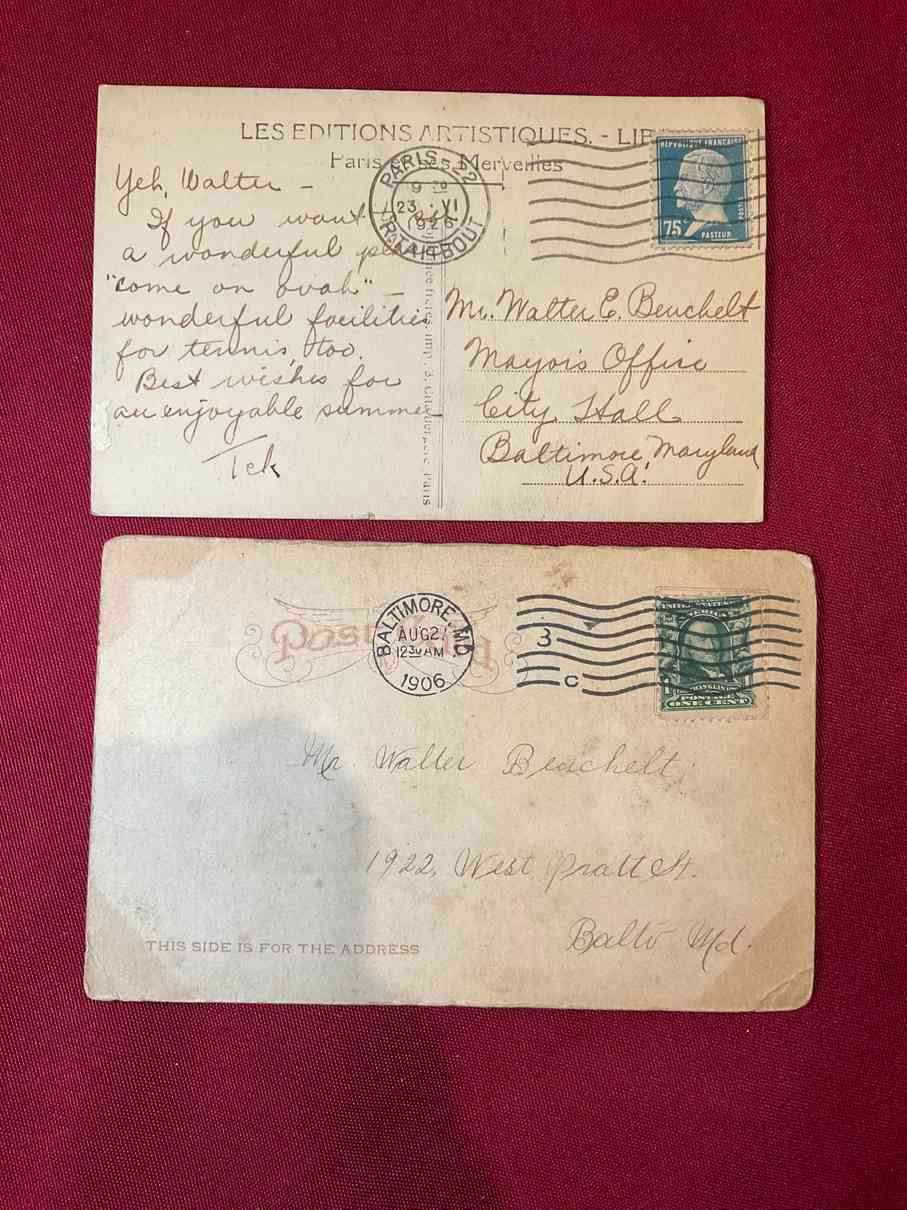 LES EDITIONS ARTISTIQUES. - LIP
Paris et ses Merveilles
PARIS - 22
9 30
23 VI
1926
R. TAITBOUT
REPUBLIQUE FRANÇAISE
POSTES
75c
PASTEUR
Yeh, Walter -
If you want
a wonderful
"come on ovah" -
wonderful facilities
for tennis, too.
Best wishes for
an enjoyable summer
Tek
Mr. Walter E. Beuchelt
Mayor's Office
City Hall
Baltimore, Maryland
U.S.A.
Post Card
BALTIMORE, MD.
AUG 21
12 30 AM
1906
3
C
UNITED STATES
AMERICA
FRANKLIN
POSTAGE
ONE CENT
Mr. Walter Beuchelt.
1922, West Pratt St.
Balto Md.
THIS SIDE IS FOR THE ADDRESS